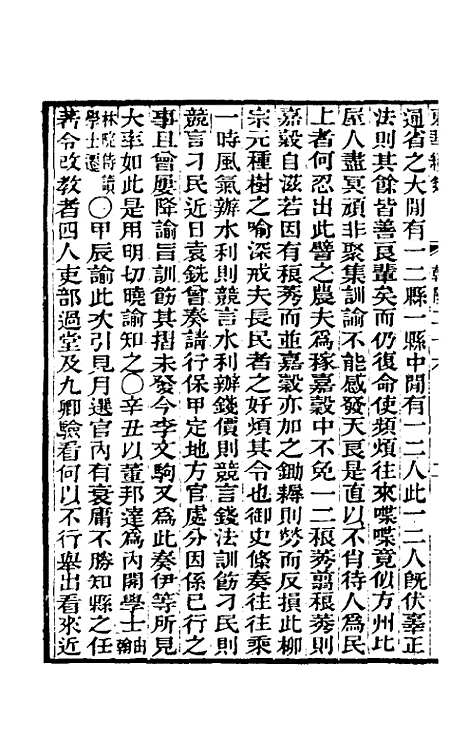 通省之大閒有一二縣一縣中閒有一二人此一二人旣伏辜正
法則其餘皆善良輩矣而仍復命使頻煩往來喋喋竟似方州比
屋人盡哀頑非聚集訓諭不能感發天良是直以不肖待人爲民
上者何忍出此譬之農夫爲稼嘉穀中不免一二稂莠翦稂莠則
嘉穀自滋若因有稂莠而並嘉穀亦加之鋤耨則勞而反損此柳
宗元種樹之喻深戒夫長民者之好煩其令也御史條奏往往乘
一時風氣辦水利則競言水利辦錢價則競言錢法訓飭刁民則
競言刁民近日袁銑曾奏請行保甲定地方官處分因係已行之
事且曾屢降諭旨訓飭其摺未發今李文駒又爲此奏伊等所見
大率如此是用明切曉諭知之〇辛丑以董邦達爲內閣學士由翰
林院侍讀學士遷〇甲辰諭此次引見月選官內有衰庸不勝知縣之任
著令改教者四人吏部過堂及九卿驗看何以不行舉出看來近